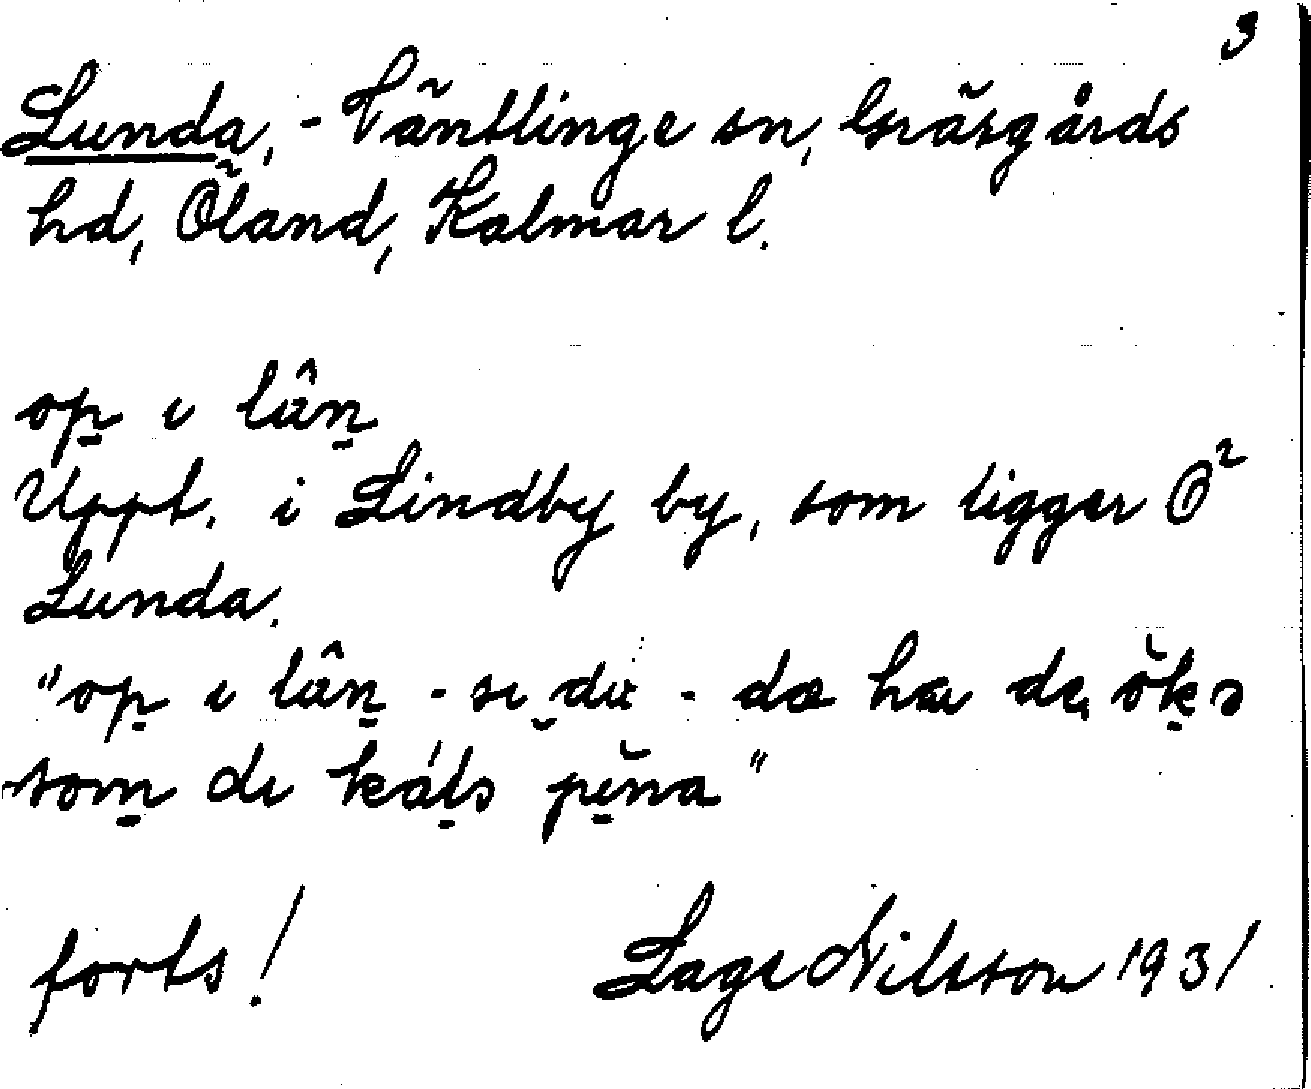 3
Lunda, - Väntlinge sn, Gräsgårds
hd, Öland, Kalmar l.
op̠ ɩ lân̠
Uppt. i Lindby by, som ligger Ö
Lunda.
"op̠ ɩ lân̠ - sɩ du - dæ
som̠ dɩ
forts! Lage Nilsson 1931